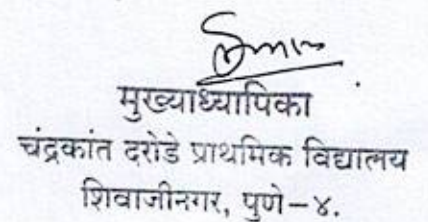 मुख्याध्यापिका
चंद्रकांत दरोडे प्राथमिक विद्यालय
शिवाजीनगर, पुणे-४.